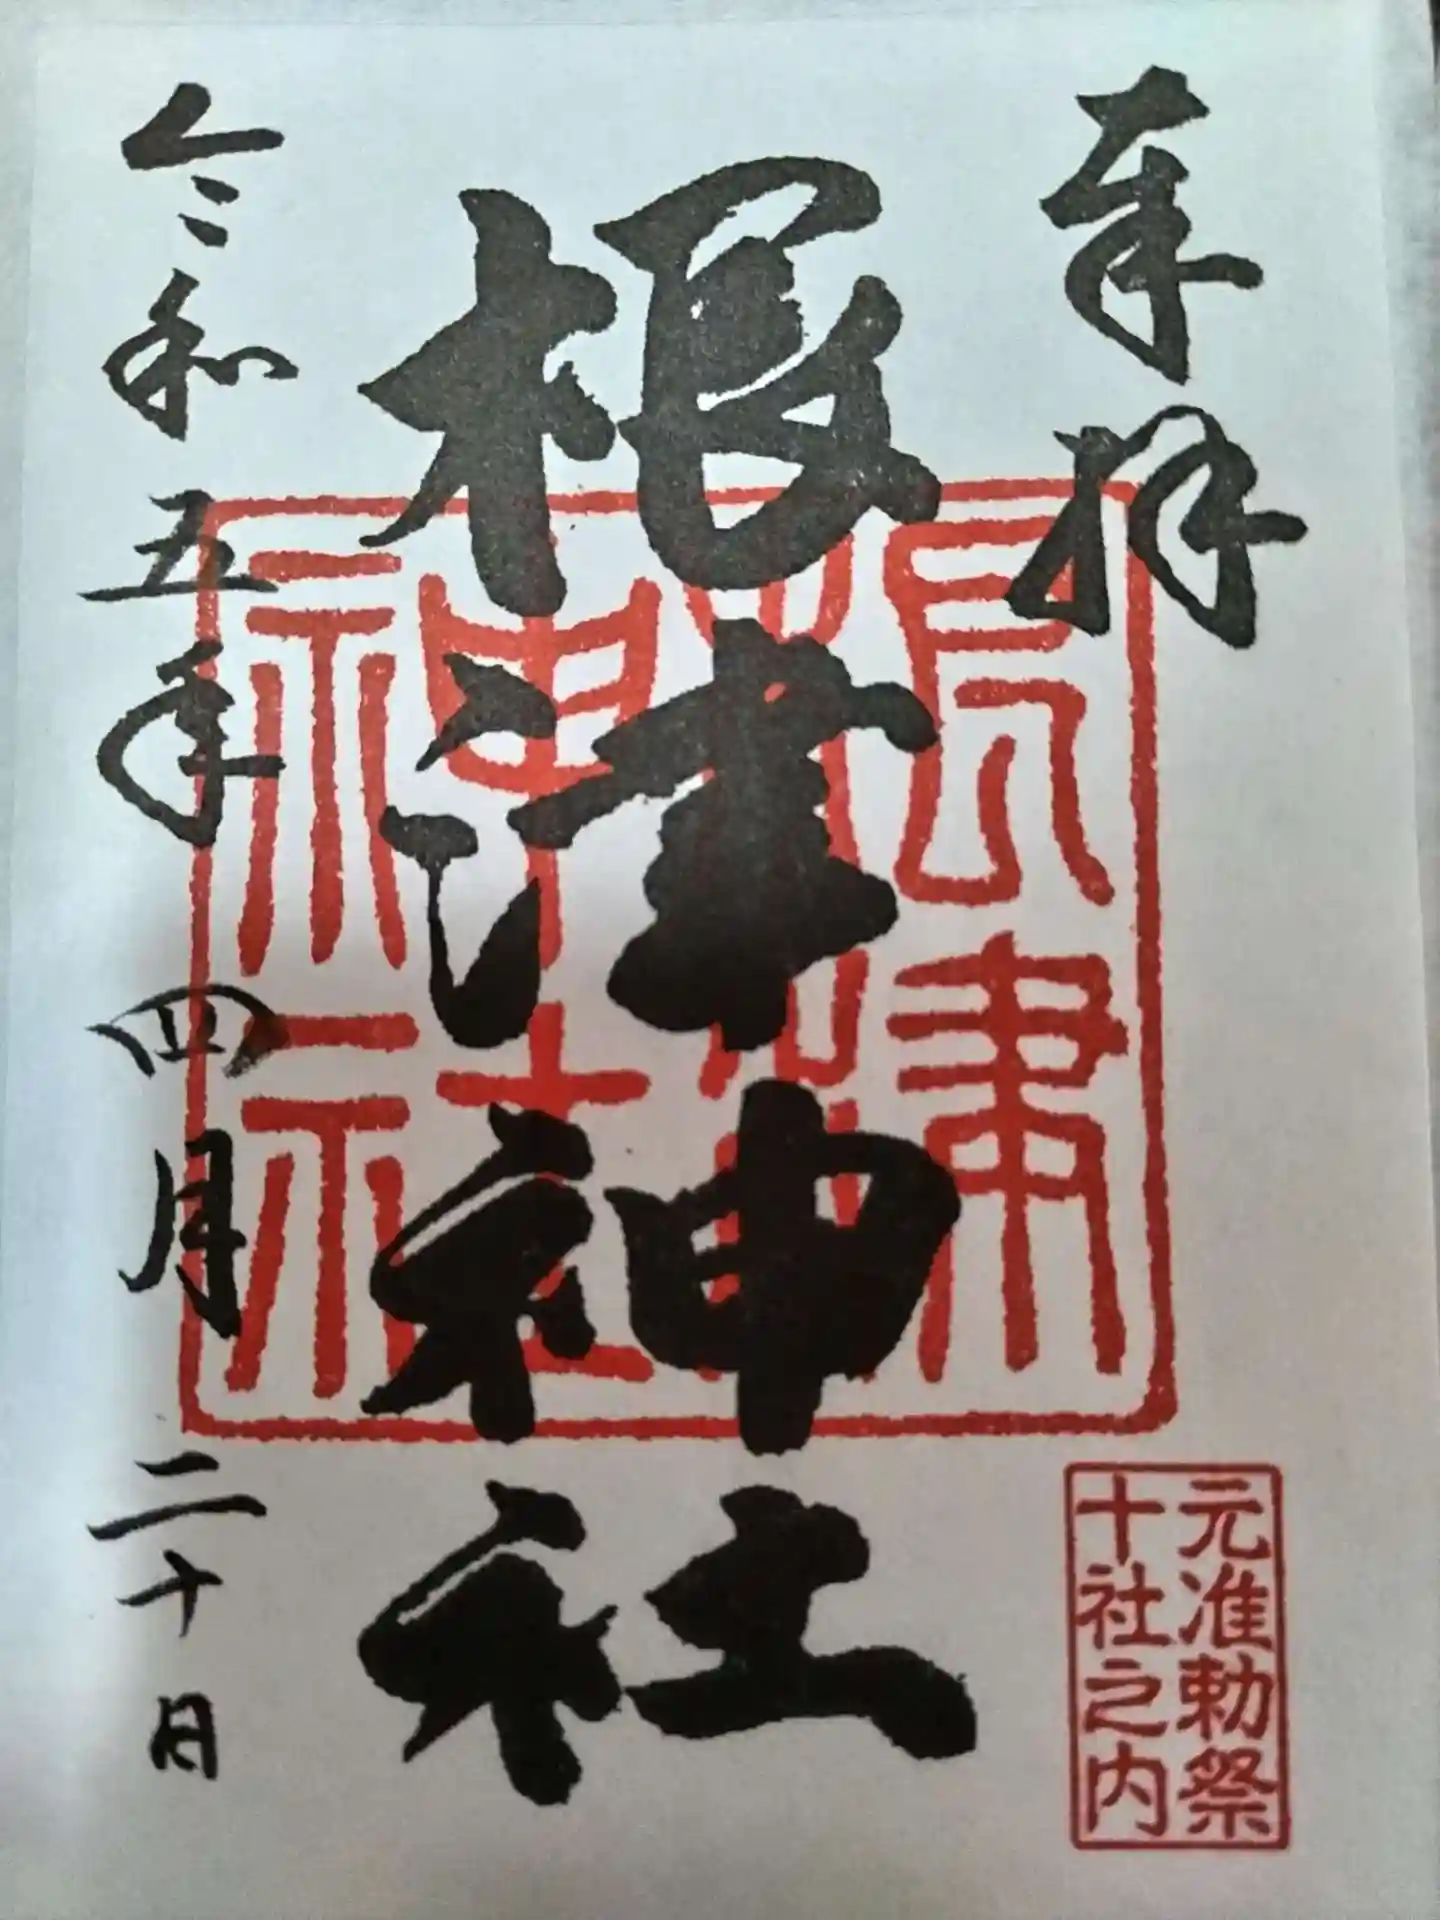 奉拝
根津神社
根津
神社
令和五年四月二十日
元准勅祭
十社之内